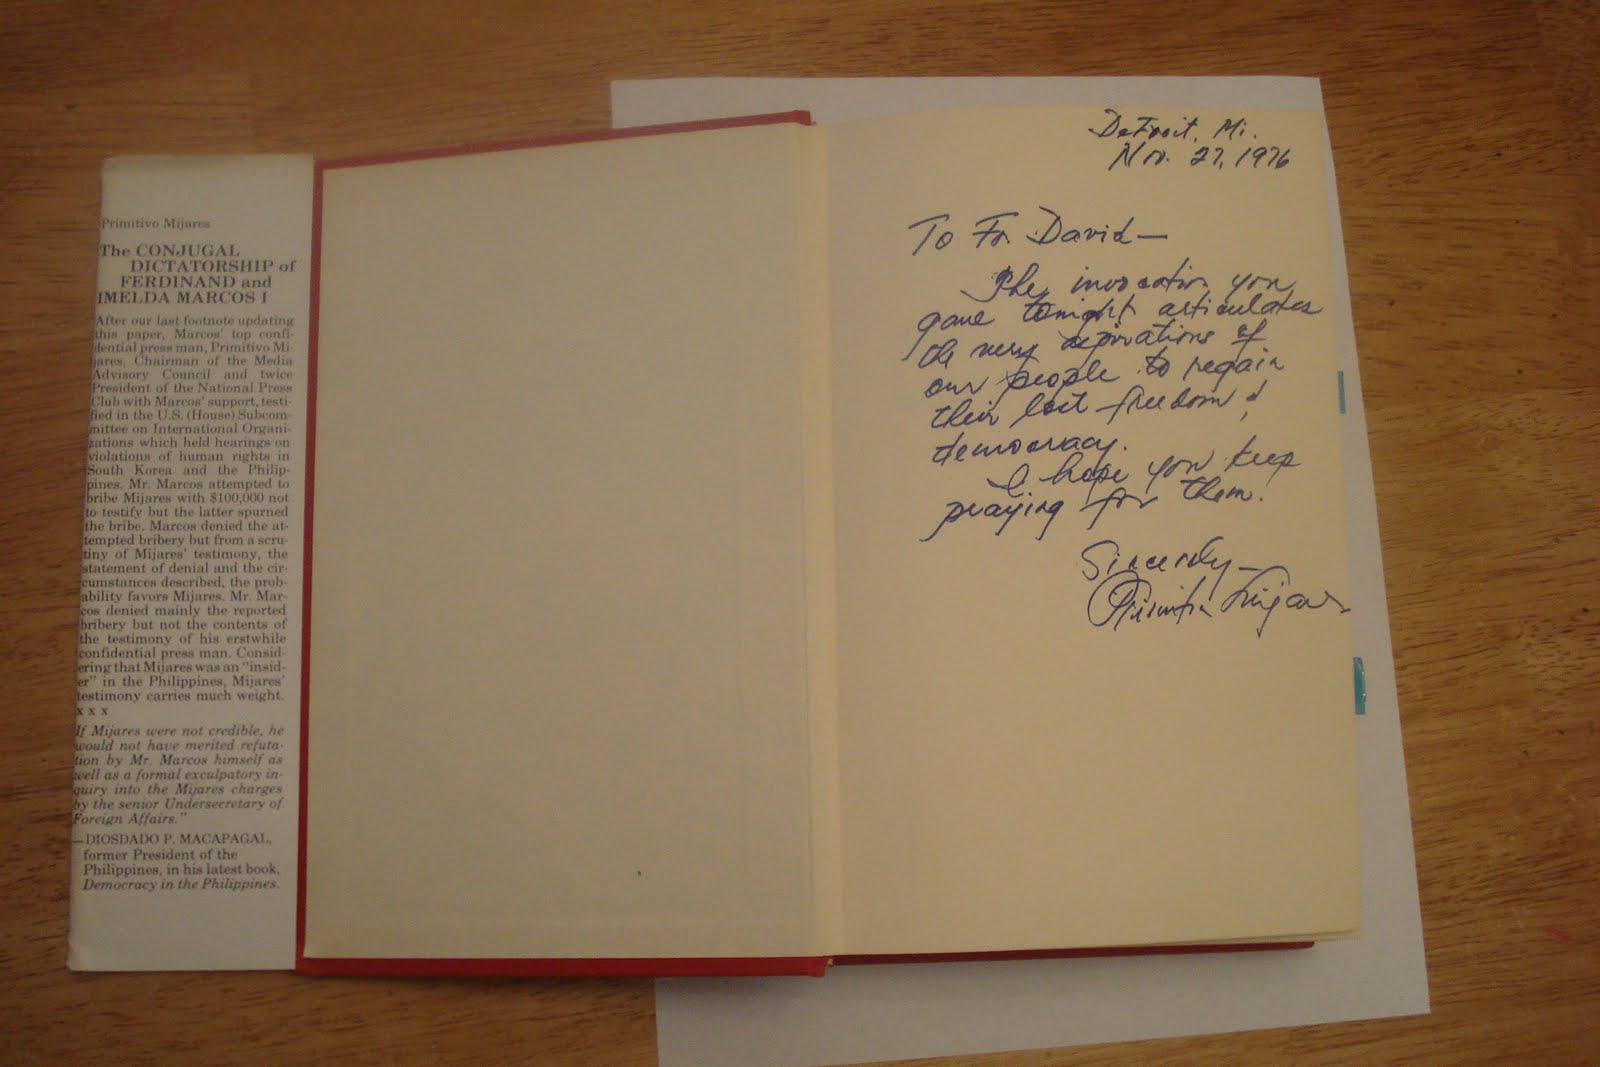 Primitivo Mijares
The CONJUGAL
DICTATORSHIP of
FERDINAND and
IMELDA MARCOS I
After our last footnote updating
this paper, Marcos' top confi-
dential press man, Primitivo Mi-
jares, Chairman of the Media
Advisory Council and twice
President of the National Press
Club with Marcos' support, testi-
fied in the U.S. (House) Subcom-
mittee on International Organi-
zations which held hearings on
violations of human rights in
South Korea and the Philip-
pines. Mr. Marcos attempted to
bribe Mijares with $100,000 not
to testify but the latter spurned
the bribe. Marcos denied the at-
tempted bribery but from a scru-
tiny of Mijares' testimony, the
statement of denial and the cir-
cumstances described, the prob-
ability favors Mijares. Mr. Mar-
cos denied mainly the reported
bribery but not the contents of
the testimony of his erstwhile
confidential press man. Consid-
ering that Mijares was an "insid-
er" in the Philippines, Mijares'
testimony carries much weight.
x x x
If Mijares were not credible, he
would not have merited refuta-
tion by Mr. Marcos himself as
well as a formal exculpatory in-
quiry into the Mijares charges
by the senior Undersecretary of
Foreign Affairs."
—DIOSDADO P. MACAPAGAL,
former President of the
Philippines, in his latest book,
Democracy in the Philippines.
Detroit, Mi.
Nov. 27, 1976
To Fr. David—
The invocation you
gave tonight articulates
the very aspirations of
our people to regain
their lost freedom &
democracy.
I hope you keep
praying for them.
Sincerely—
Primitivo Mijares